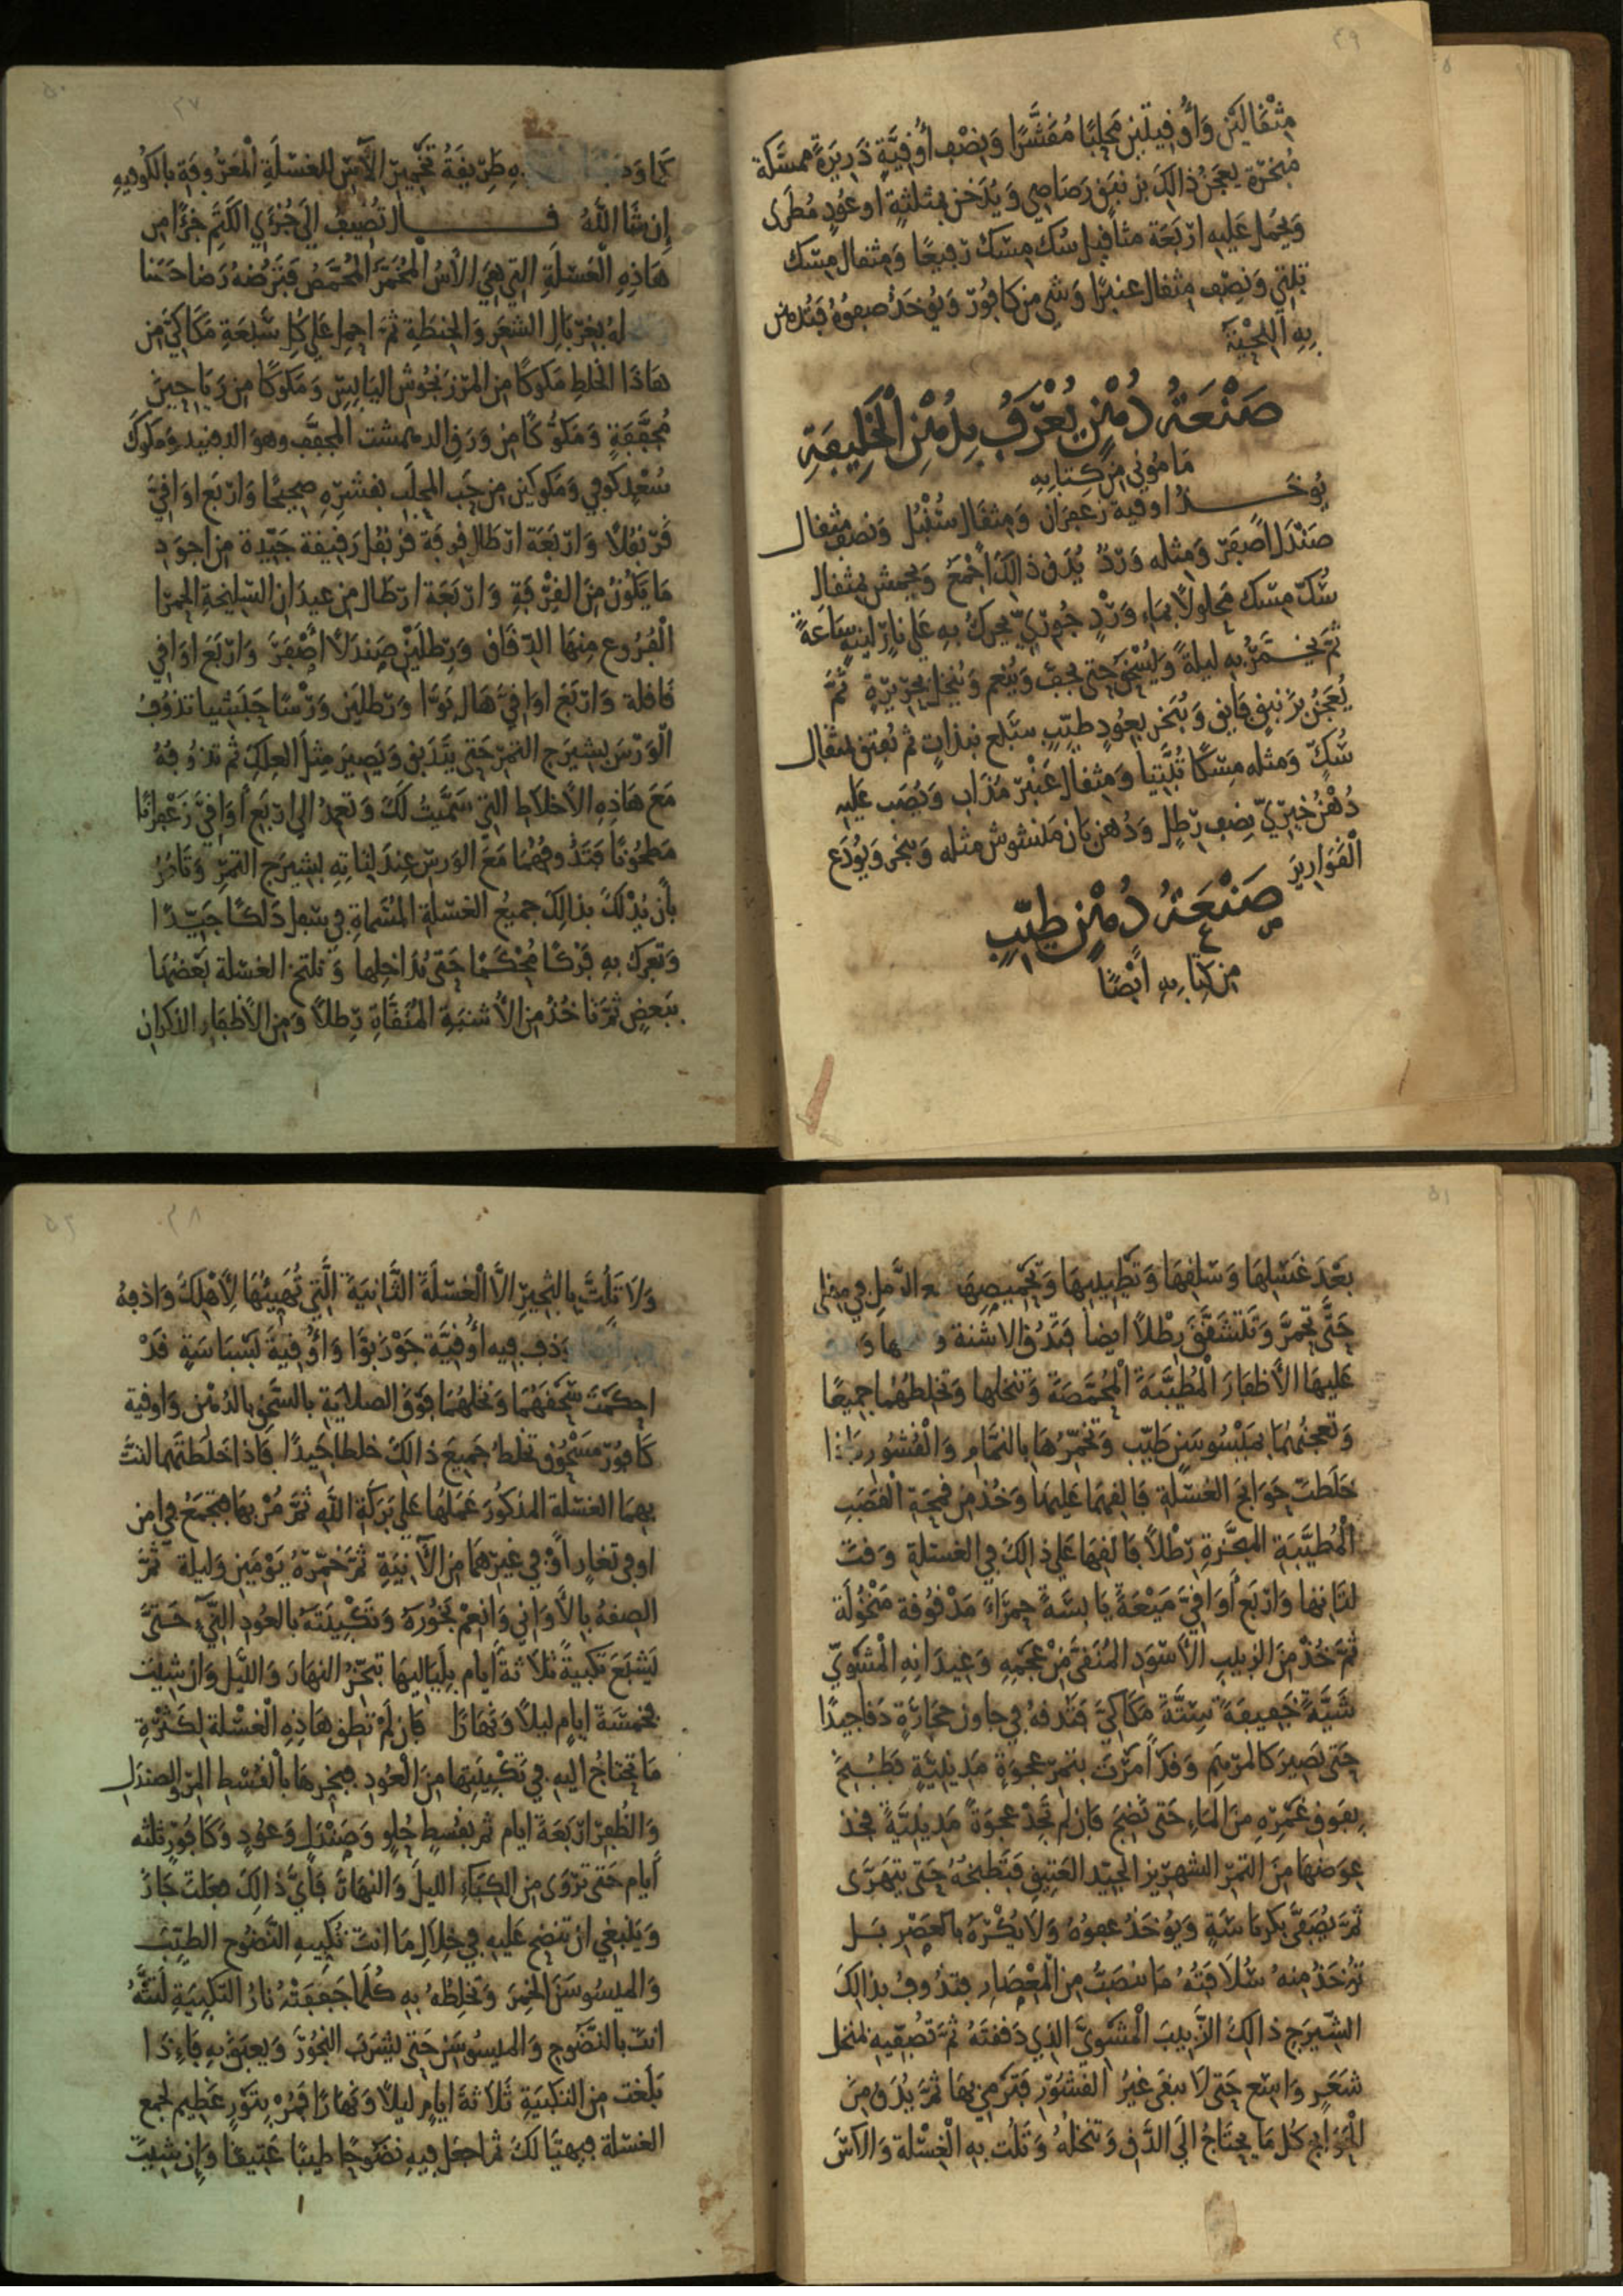 ٤٩
مِثْقَالَيْن وَأُوقِيتَيْن مَحْلَبًا مُقَشَّرًا وَنِصْف أُوقِيَّةٍ ذَرِيرَةً ممسّكة
مُبَخَّرة يعجَنُ ذالكَ بزنبق رَصَاصِي وَيُدَخن بمثلثةٍ او عُودٍ مُطَرى
وَيُحْمَل عَليه ارْبَعَة مثاقيل سُكّ مِسْك رَفيعًا وَمثقال مِسْك
تبّتي وَنِصْف مثقال عنبرًا وَشَي من كافور وَيُؤخَذ صَفوُهُ فَتُدهن
بِهِ اللِّحْيَة
صَنْعَةُ دُهْنٍ يُعْرَفُ بِدُهْنِ الْخَلِيفَةِ
مَامُوني من كِتابِهِ
يُوخَـــذُ اوقية زَعْفَرَان وَمِثقال سُنْبُل وَنصْف مثقال
صَنْدَل اصْفَر وَمثله وَرْدٌ يُدَق ذالكَ اجْمَعُ وَيحمّش بمثقال
سُكّ مِسْك محلولاً بمَاءِ وَرْدٍ جُورِيّ يحركُ بهِ عَلى نارٍ لينةٍ سَاعَةً
ثم يخمَّرُ به ليلةً وَيُسْخن حتى يجفّ وَيُنعم وَيُنخل بحريرةٍ ثمَّ
يُعْجَنُ بزنبقٍ فايق وَيُبَخر بعُودٍ طيّبٍ سَبْع نبذاتٍ ثم يُفتق بمثقال
سُكٍّ وَمثله مِسْكًا تُبَّتِيا وَمِثقال عَنْبَر مُذاب وَيُصَبّ عليه
دُهْنُ خيريّ نِصف رِطل وَدُهن بَان مَنشوش مثله وَيبخر وَيُودَع
الْقَوَارير
صَنْعَةُ دُهْنٍ طيّبٍ
من كِتَابِهِ ايْضًا
٥٠
٤٧
طَرِيقَةُ تَخْمِير الآس للغسْلَةِ الْمَعْرُوفَةِ بالكُوفيهِ
إِن شَا اللهُ قــــال تُضِيفُ الى جُزْءَي الكَتَم جُزْءًا من
هَاذِهِ الْغسْلَةِ التي هيَ الآسُ الْمُخَمّرُ الْمُحَمَّصُ فتَرُضهُ رَضا حَسَنا
له بغِرْبَالِ الشعير وَالحِنطَةِ ثمَّ احمِل عَلى كُلِ سَبْعَةِ مَكَاكيَّ من
هَاذَا الخلطِ مَكوكًا من المرزنجُوش اليَابِسِ وَمَكوكًا من رَيَاحِينَ
مُجَفَّفَةٍ وَمَكُّوكًا من وَرَق الدهمشت المجفَّف وهوَ الدهنيد وَمَكوكَ
سُعْدٍ كُوفي وَمَكوكين من حَب المحلَب بقشرِهِ صحيحًا وَارْبَع اوَاقيَّ
قَرَنفُلاً وَارْبَعَة ارْطَال قرفَة قَرَنْفُل رَقيقة جَيّدة من اجوَدِ
مَا يَكُونُ مِنَ الْقِرْفَةِ وَارْبَعَة ارْطَال من عِيدَانِ السَّلِيخَةِ الحمرا
الْفُرُوع مِنهَا الدِّقَاق وَرِطلَيْنِ صَنْدَلاً أصْفَرَ وَارْبَعَ اوَاقي
قَاقلة وَارْبَعَ اوَاقيَّ هَال بَوّا وَرطلَين وَرْسًا حَبَشِيا تذُوفُ
الْوَرْسَ بشيرَج التمر حَتى يَتَدَبَّق وَيَصيرَ مِثلَ العِلكِ ثم تذُوفهُ
مَعَ هَاذِهِ الأخلاَط التي سَمَّيتُ لَكَ وَتعمدُ الى ارْبَعِ أوَاقيّ زَعْفرانًا
مَطحُونًا فتَذُوفهُمَا مَعَ الوَرس عِندَ لِتَاتِهِ بشيرَج التمرِ وَتَامُرُ
بأن يُدْلَكَ بذالِكَ جميعُ الغسلةِ المُسَماةِ في سفل دَلكًا جَيّدًا
وَتعرك بهِ فَركًا مُحْكَمًا حَتى يُدَاخِلها وَتلتخ الغسلة بَعْضُهَا
ببَعضٍ ثمَّ تاخُذُ من الأشنَةِ المُنَقَّاةِ رِطلاً وَمن الأظفَارِ الذكران
٥١
بَعْدَ غَسْلِهَا وَسَلقِهَا وَتَطْيِيبِهَا وَتَحْمِيصِهَا الرَّمل في مِقلى
حَتَّى تَحْمَرَّ وَتَتَشَقَّقَ رِطْلاً ايضاً فتَدُقُّ الاشنة وَ
عَليهَا الأظفَارَ الْمُطَيَّبَةَ الْمُحَمَّصَةَ وَتنخلها وَتخلطهُما جميعًا
وَتعجنُهُمَا بمَيْسُوسَنٍ طَيّبٍ وَتُخَمّرُهَا بالنمَّام وَالْقُشُور فَاذا
خَلَطتَ حَوَايجَ الغسْلة فَالقِهمَا عَليهَا وَخُذ من فحمَة الْقَصَبِ
الْمُطَيَّبَةِ المبَخَّرَةِ رِطْلاً فَالقِهَا عَلى ذالكَ في الغسْلةِ وَقتَ
لتاتها وَارْبَع أوَاقيَّ مَيْعَةً يَابِسَةً حمرَاءَ مَدْقُوقة مَنْخُولَة
ثمَّ خُذ منَ الزبيبِ الأسْوَد المُنَقى مِنْ عَجَمِهِ وَعِيدَانِهِ الْمَشْوِيّ
شَيَّةً خَفيفَةً سِتَّةَ مَكَاكيَّ فتَدقهُ في جاون حجَارَةٍ دَقا جيدًا
حَتى يَصِيرَ كالمرْهَم وَقدْ أمَرْتَ بتمر عجوَةٍ مَدِينيَّةٍ فطُبِخَ
بفَوق غَمْرِه مِنَ المَاءِ حَتى نَضِجَ فَان لم تَجِدْ عجوَةً مَدِينيَّةً فخذ
عِوَضهَا منَ التمر الشهريز الجيّد العَتِيق فتَطبخُهُ حَتى يَتهَرَّى
ثمَّ يُصَفَّى بكربَاسَةٍ وَيُؤخَذُ صَفوُهُ وَلاَ يُكْرَهُ بالعَصْرِ بَل
تؤخَذُ مِنهُ سُلاَفَتَهُ مَا ينصَبّ من الْمِعْصَارِ فتدُوفُ بذالكَ
الشّيرَجِ ذالكَ الزَّبيبَ الْمَشْوِيَّ الذِي دَقَقتَهُ ثمَّ تُصَفِّيهِ بمنخل
شَعَرٍ وَاسِع حَتى لا يبقَى غيرُ القُشُورِ فتَرْمي بهَا ثمَّ يُدَق مِنَ
الْحَوَايج كُل مَا يحتَاجُ الَى الدَّق وَتنخلهُ وَتَلُت بهِ الْغِسْلة وَالآسَ
٥٢
٤٨
وَلاَ تَلُتَّ بالثّجيرِ الاَّ الْغسْلَةَ الثَّانيَةَ الَّتِي تُهَيِّئُهَا لأهْلِكَ وَاذقهُ
وَذف فيهِ أوقيَّة جَوْزبَوّا وَاُوقيَة بَسْبَاسَةٍ قَدْ
احكَمْتَ سَحْقَهُمَا وَنخلهُمَا فوْقَ الصلاَيَةِ بالسَّحْق بالدُهن وَاوقية
كَافُور مَسْحُوق تخلط جَميعَ ذالكَ خلطا جَيدًا فَاذا خَلَطتَهما لتتّ
بهمَا الغسْلة المذكُورَ عَمَلهَا عَلى بَرَكَةِ اللهِ ثمَّ مُرْ بهَا فتجمَعُ في امن
او في تغارٍ أوْ في غَيْرِهمَا من الآنِيَةِ ثمَّ خَمّرهُ يَوْمَينِ وَليلة ثمَّ
الصقهُ بالأوَاني وَانعِمْ بخُورَهُ وَتكبِيتَهُ بالعُودِ النّيءِ حَتَّى
يَشْبَعَ تكبيةً ثلاثةَ أيام بلَيَاليهَا تبخّر النهَارَ وَالليْل وَان شِيْتَ
فخمْسَةَ ايام ليلاً وَنهَارًا فَان لم تطق هَاذِهِ الْغسْلة لكَثْرَةِ
مَا تحتَاجُ اليهِ في تكْبِيَتِهَا منَ الْعُودِ فبخرهَا بالْقُسْطِ المرّ وَالصندَل
وَالظُفِرِ ارْبَعَةَ ايام ثم بقُسطٍ حُلوٍ وَصَنْدَلٍ وَعُودٍ وَكَافُورٍ ثلثه
أيام حَتى تروَى من الكِبَاءِ الليلَ وَالنهَارَ فَأيَّ ذالِكَ فعَلتَ جَازَ
وَيَنبَغي ان تنضح عَليهِ في خِلاَل مَا انتَ تُكبِيهِ النَّضُوح الطيّبَ
وَالميسُوسَنَ الخمِرَ وَتخلِطهُ بهِ كُلمَا جَفَفَتْهُ نارُ التكبِيَةِ لَتَتَّهُ
انتَ بالنَّضُوحِ وَالميسُوسَنِ حَتى يشرَبَ البَخُورَ وَيعبَقَ بهِ فَاءِذَا
بَلَغت من التكبيَةِ ثَلاَثةَ ايامٍ ليلاً وَنهَارًا فَمُرْ بتَوْرٍ عَظيم لجمع
الغسْلة فيهيّا لكَ ثم اجعَل فيهِ نضُوحًا طيبًا عَتيقا وَاِن شِيتَ